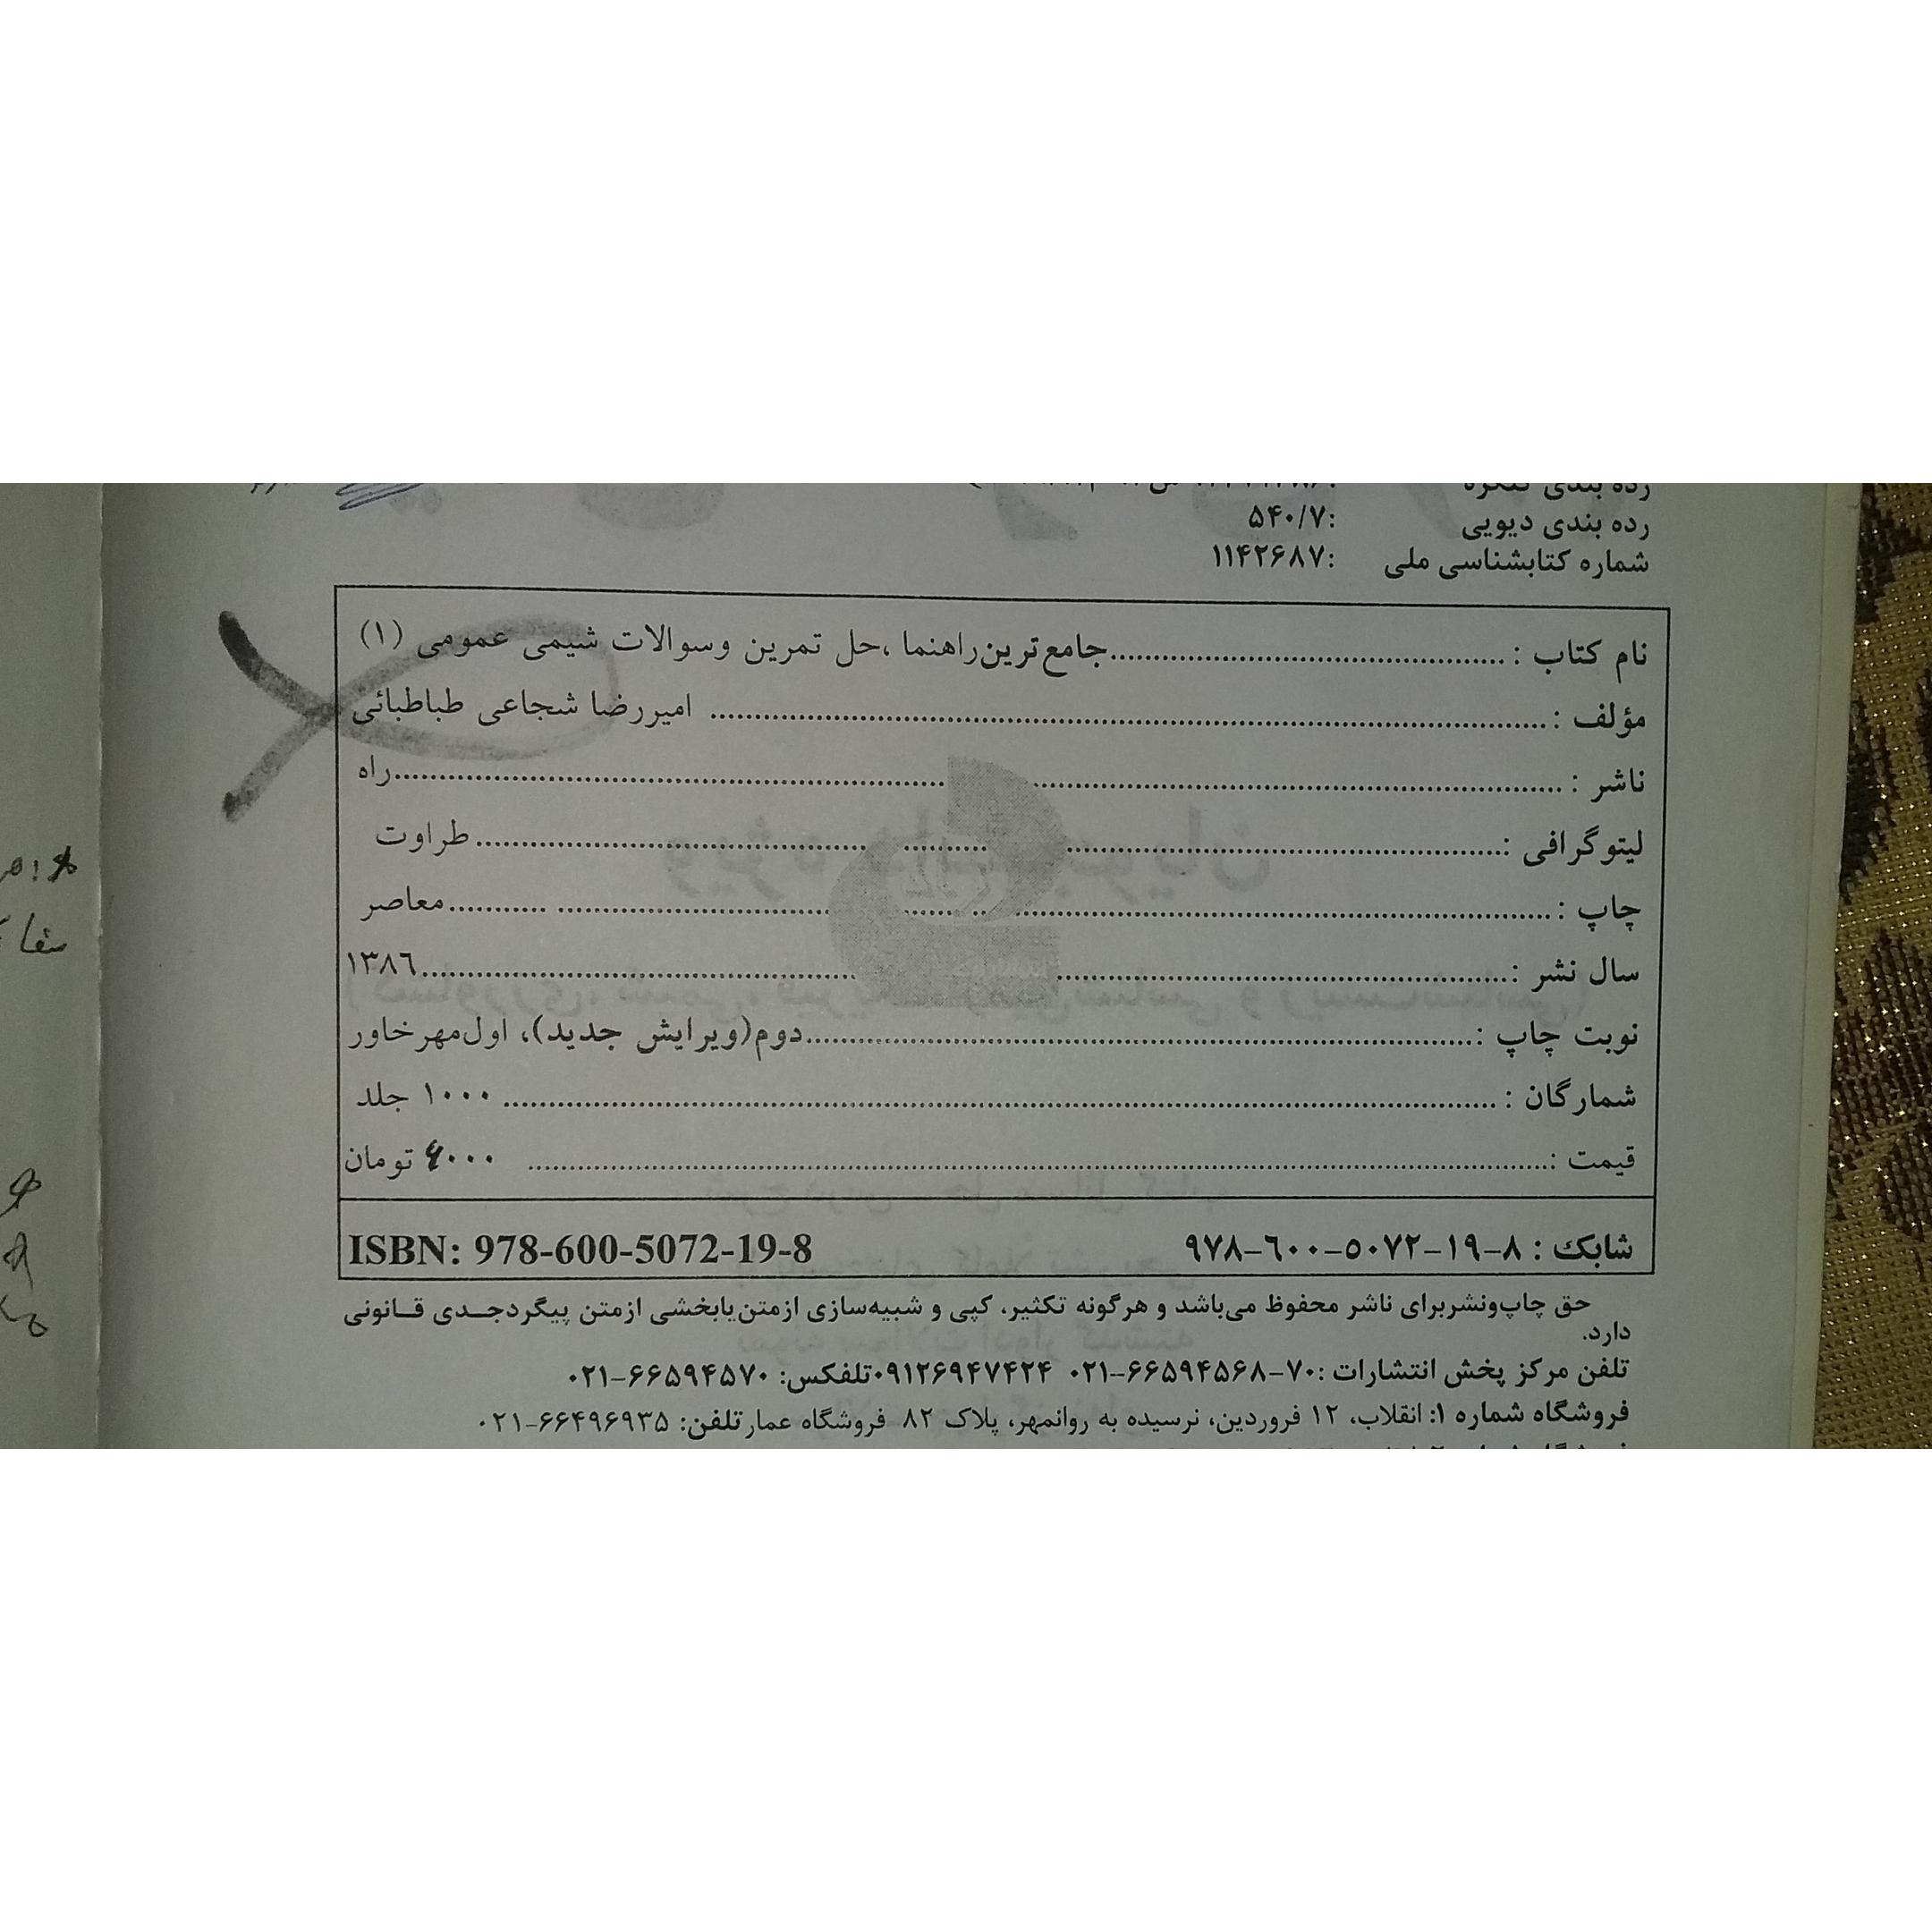 رده بندی کنگره
رده بندی دیویی :۵۴۰/۷
شماره کتابشناسی ملی :۱۱۴۲۶۸۷
نام کتاب : ........ جامع‌ترین راهنما ،حل تمرین وسوالات شیمی عمومی (۱)
مؤلف : ........ امیررضا شجاعی طباطبائی
ناشر : ........ راه
لیتوگرافی : ........ طراوت
چاپ : ........ معاصر
سال نشر : ........ ۱۳۸٦
نوبت چاپ : ........ دوم(ویرایش جدید)، اول‌مهرخاور
شمارگان : ........ ۱۰۰۰ جلد
قیمت : ........ تومان
شابک : ۸-۱۹-۵۰۷۲-٦۰۰-۹۷۸ ISBN: 978-600-5072-19-8
حق چاپ‌ونشربرای ناشر محفوظ می‌باشد و هرگونه تکثیر، کپی و شبیه‌سازی ازمتن‌یابخشی ازمتن پیگردجـدی قـانونی
دارد.
تلفن مرکز پخش انتشارات :۷۰-۶۶۵۹۴۵۶۸-۰۲۱ ۰۹۱۲۶۹۴۷۴۲۴تلفکس: ۶۶۵۹۴۵۷۰-۰۲۱
فروشگاه شماره ۱: انقلاب، ۱۲ فروردین، نرسیده به روانمهر، پلاک ۸۲ فروشگاه عمار تلفن: ۶۶۴۹۶۹۳۵-۰۲۱